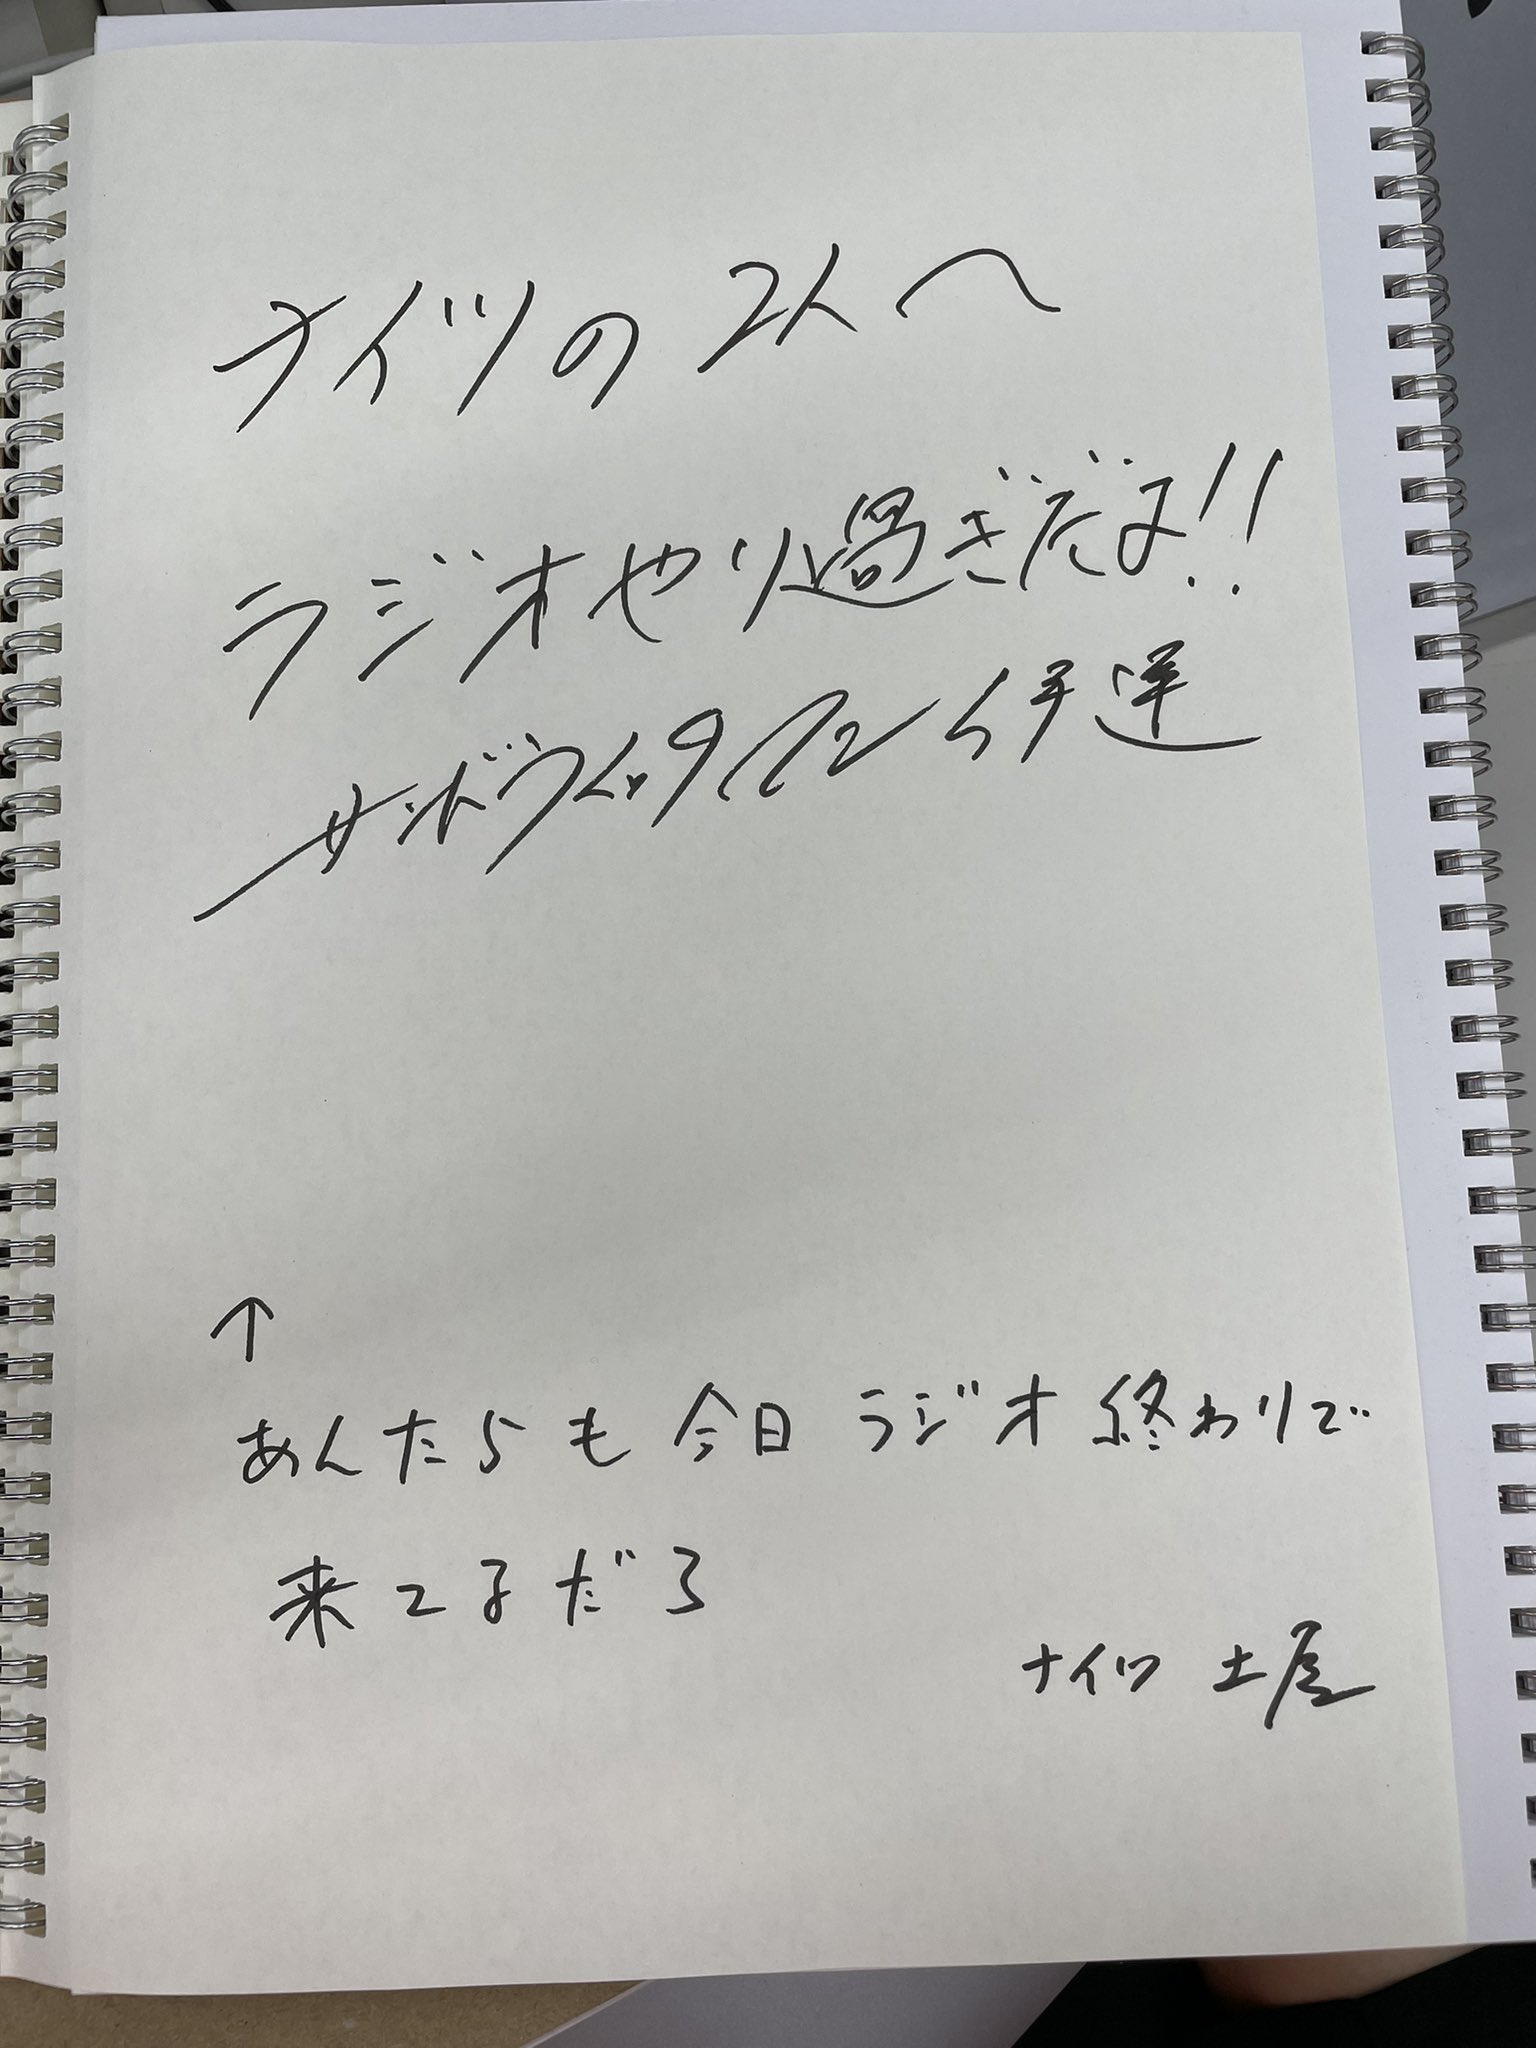 ナイツの2人へ
ラジオやり過ぎだよ!!
サンドウィッチマン 伊達
↑
あんたらも今日ラジオ終わりで
来てるだろ
ナイツ 土屋